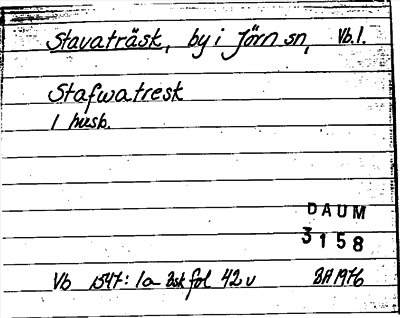 Stavaträsk, by i Jörn sn, Vb.l.
Stafwatresk
1 husb.
DAUM
3158
Vb 1547: 1a Bsk fol 42 v BH 1976